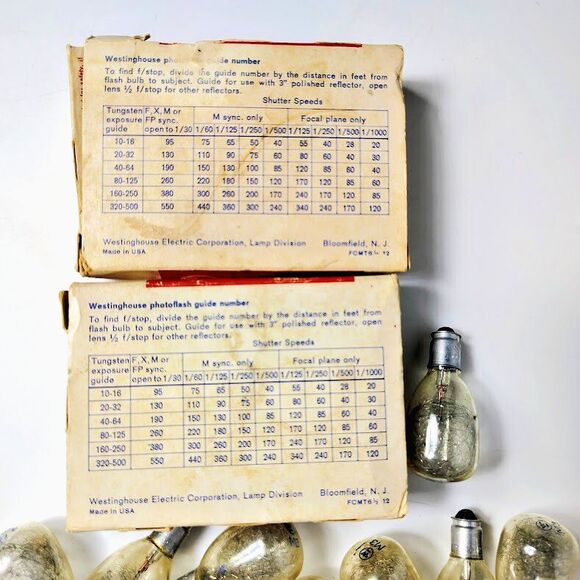 Westinghouse guide number
To find f/stop, divide the guide number by the distance in feet from
flash bulb to subject. Guide for use with 3" polished reflector, open
lens ½ f/stop for other reflectors.
Shutter Speeds
Tungsten F, X, M or M sync. only Focal plane only
exposure FP sync.
guide open to 1/30 1/60 1/125 1/250 1/500 1/125 1/250 1/500 1/1000
10-16 95 75 65 50 40 55 40 28 20
20-32 130 110 90 75 60 80 60 40 30
40-64 190 150 130 100 85 120 85 60 40
80-125 260 220 180 150 120 170 120 85 60
160-250 380 300 260 200 170 240 170 120 85
320-500 550 440 360 300 240 340 240 170 120
Westinghouse Electric Corporation, Lamp Division Bloomfield, N. J.
Made in USA 12
Westinghouse photoflash guide number
To find f/stop, divide the guide number by the distance in feet from
flash bulb to subject. Guide for use with 3" polished reflector, open
lens ½ f/stop for other reflectors.
Shutter Speeds
Tungsten F, X, M or M sync. only Focal plane only
exposure FP sync.
guide open to 1/30 1/60 1/125 1/250 1/500 1/125 1/250 1/500 1/1000
10-16 95 75 65 50 40 55 40 28 20
20-32 130 110 90 75 60 80 60 40 30
40-64 190 150 130 100 85 120 85 60 40
80-125 260 220 180 150 120 170 120 85 60
160-250 380 300 260 200 170 240 170 120 85
320-500 550 440 360 300 240 340 240 170 120
Westinghouse Electric Corporation, Lamp Division Bloomfield, N. J.
Made in USA 12
M3